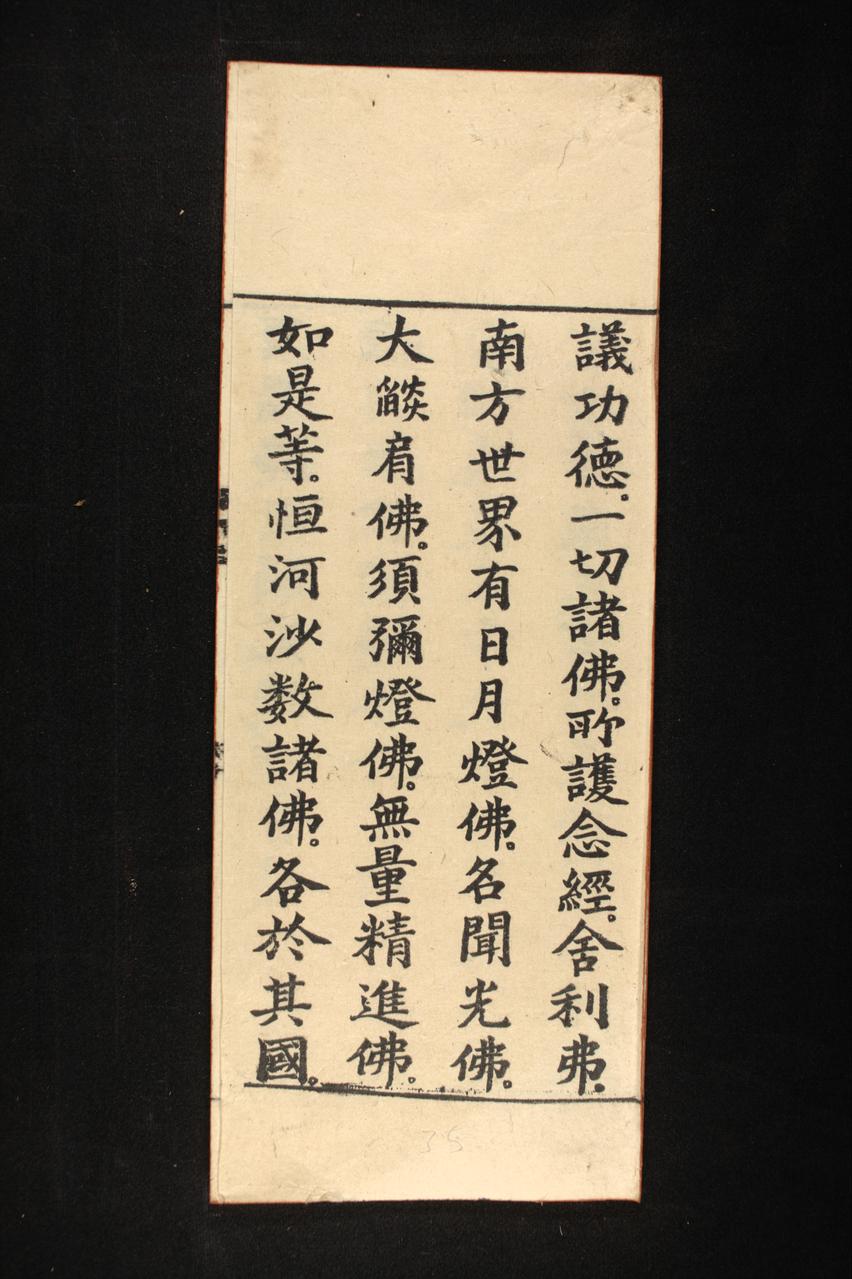 議功德。一切諸佛。所護念經。舍利弗。
南方世界有日月燈佛。名聞光佛。
大燄肩佛。須彌燈佛。無量精進佛。
如是等。恒河沙数諸佛。各於其國。
35